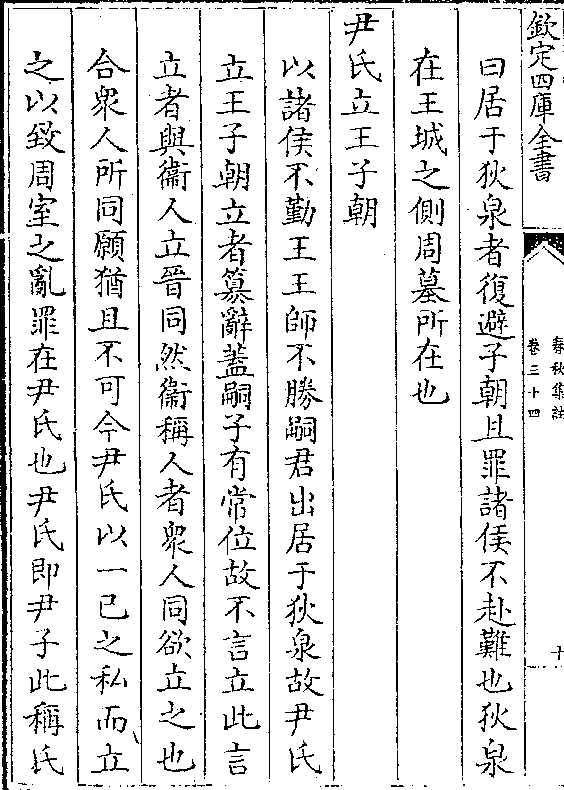 欽定四庫全書
春秋集註
卷三十四
十
曰居于狄泉者復避子朝且罪諸侯不赴難也狄泉
在王城之側周墓所在也
尹氏立王子朝
以諸侯不勤王王師不勝嗣君出居于狄泉故尹氏
立王子朝立者篡辭蓋嗣子有常位故不言立此言
立者與衞人立晉同然衞稱人者衆人同欲立之也
合衆人所同願猶且不可今尹氏以一已之私而立
之以致周室之亂罪在尹氏也尹氏即尹子此稱氏